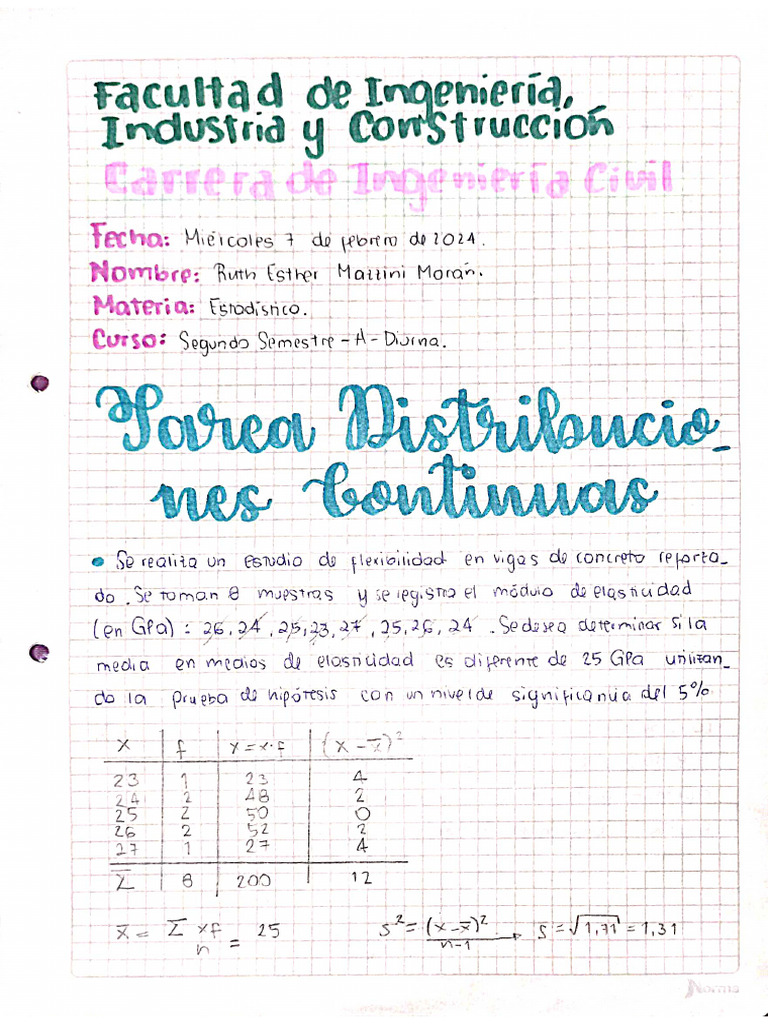 Facultad de Ingeniería,
Industria y Construcción
Carrera de Ingeniería Civil
Fecha: Miércoles 7 de febrero de 2024.
Nombre: Ruth Esther Mazzini Morán.
Materia: Estadística.
Curso: Segundo Semestre - A - Diurna.
Tarea Distribucio_
nes Continuas
• Se realiza un estudio de flexibilidad en vigas de concreto reporta_
do. Se toman 8 muestras y se registra el módulo de elasticidad
(en GPa): 26, 24, 25, 23, 27, 25, 26, 24. Se desea determinar si la
media en medios de elasticidad es diferente de 25 GPa utilizan_
do la prueba de hipótesis con un nivel de significancia del 5%
x f x = x·f (x - x̄)²
23 1 23 4
24 2 48 2
25 2 50 0
26 2 52 2
27 1 27 4
Σ 8 200 12
x̄ = Σ xf / n = 25 s² = (x-x̄)² / n-1 → s = √1,71 = 1,31
Norma